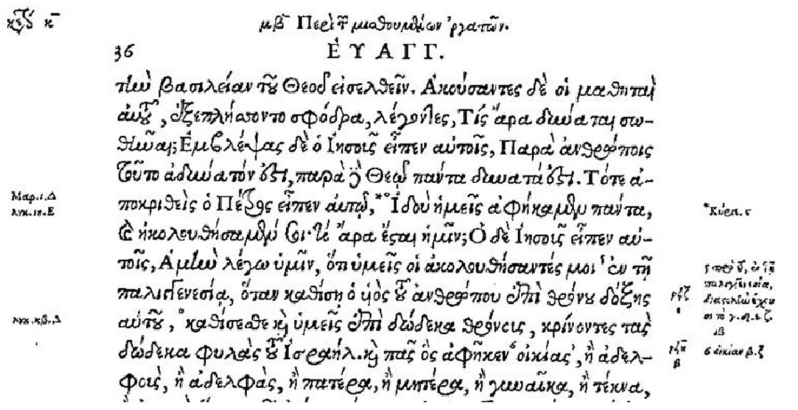 κεφ κ
μβ Περὶ τῶν μισθουμένων ἐργατῶν.
36 ΕΥΑΓΓ.
τὴν βασιλείαν τοῦ Θεοῦ εἰσελθεῖν. Ακούσαντες δὲ οἱ μαθηταὶ
αὐτοῦ, ἐξεπλήσσοντο σφόδρα, λέγοντες, Τίς ἄρα δύναται σω-
θῆναι; Ἐμβλέψας δὲ ὁ Ιησοῦς εἶπεν αὐτοῖς, Παρὰ ἀνθρώποις
τοῦτο ἀδύνατόν ἐστι, παρὰ δὲ Θεῷ πάντα δυνατά ἐστι. Τότε ἀ-
Μαρ.ι.Δ
ποκριθεὶς ὁ Πέτρος εἶπεν αὐτῷ, Ἰδοὺ ἡμεῖς ἀφήκαμεν πάντα,
λυκ.ιη.Ε
καὶ ἠκολουθήσαμέν σοι· τί ἄρα ἔσται ἡμῖν; Ὁ δὲ Ιησοῦς εἶπεν αὐ-
τοῖς, Αμὴν λέγω ὑμῖν, ὅτι ὑμεῖς οἱ ἀκολουθήσαντές μοι ἐν τῇ
παλιγγενεσίᾳ, ὅταν καθίσῃ ὁ υἱὸς τοῦ ἀνθρώπου ἐπὶ θρόνου δόξης
λυκ.κβ.Δ
αὐτοῦ, καθίσεσθε καὶ ὑμεῖς ἐπὶ δώδεκα θρόνους, κρίνοντες τὰς
δώδεκα φυλὰς τοῦ Ισραήλ. καὶ πᾶς ὃς ἀφῆκεν οἰκίας, ἢ ἀδελ-
ς οἰκίαν β.ζ
φοὺς, ἢ ἀδελφὰς, ἢ πατέρα, ἢ μητέρα, ἢ γυναῖκα, ἢ τέκνα,